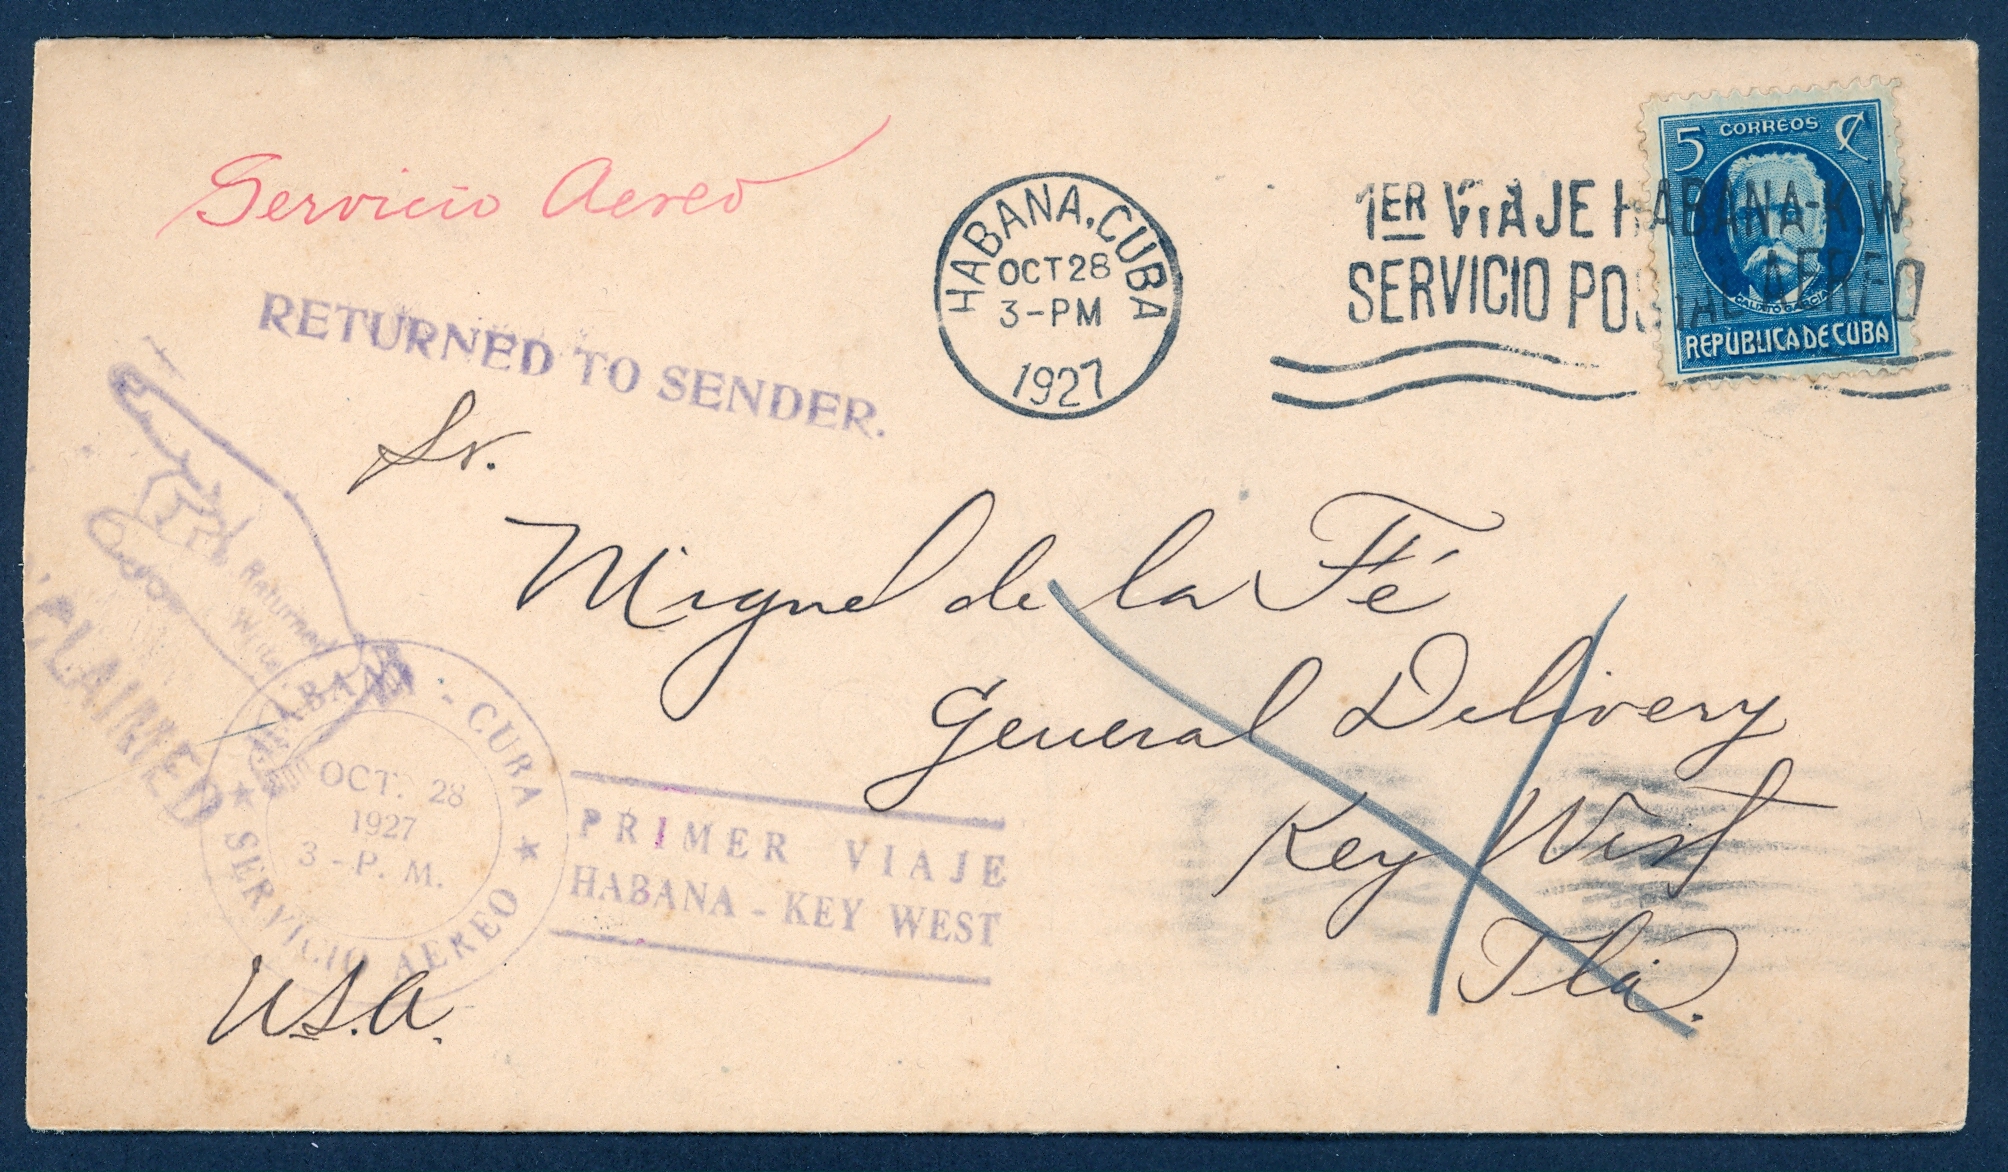 Servicio Aereo
HABANA, CUBA
OCT 28
3-PM
1927
1ER VIAJE HABANA-K.W
SERVICIO POSTAL AEREO
5 CORREOS ¢
CALIXTO GARCIA
REPUBLICA DE CUBA
RETURNED TO SENDER.
Sr.
Miguel de la Fé
General Delivery
Key West
Fla.
U.S.A.
Returned
CLAIMED
HABANA - CUBA
OCT. 28
1927
3 - P. M.
SERVICIO AEREO
PRIMER VIAJE
HABANA - KEY WEST